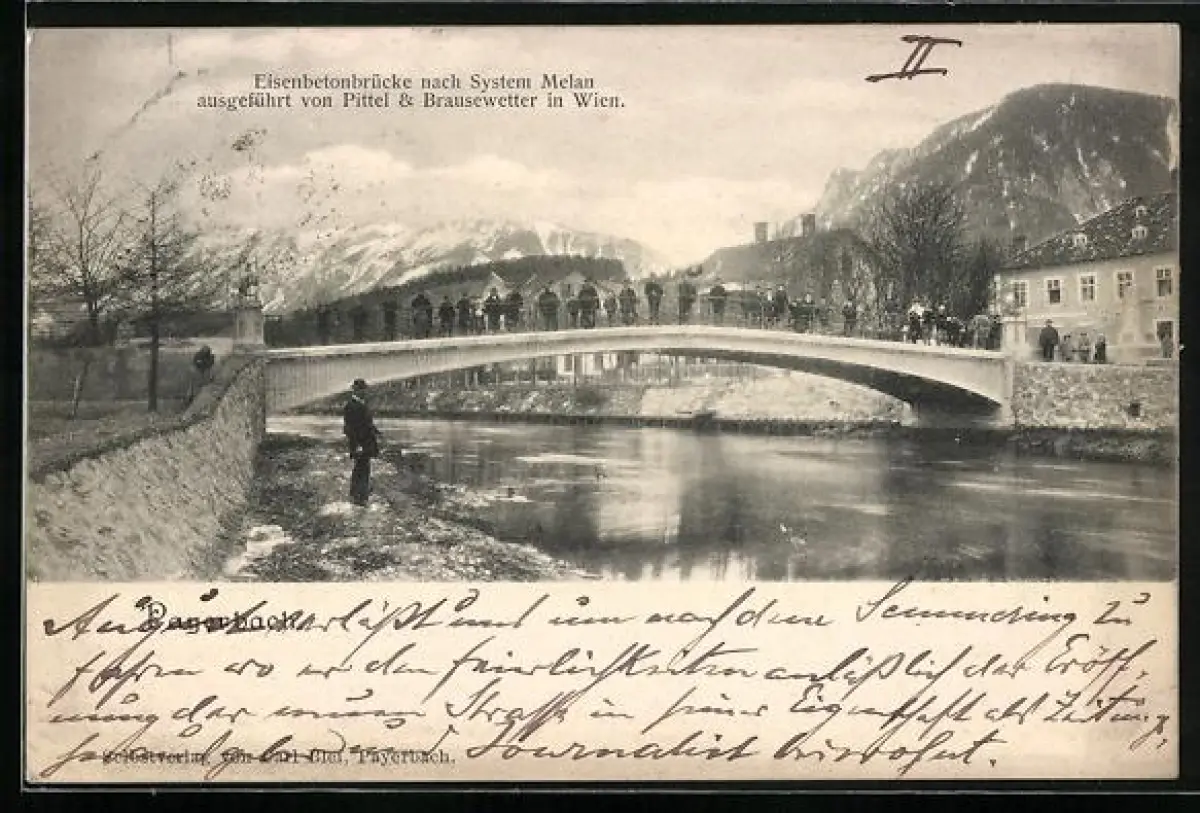 II
Eisenbetonbrücke nach System Melan
ausgeführt von Pittel & Brausewetter in Wien.
Payerbach
verläßt uns um nach dem Semmering zu
fahren wo er den Feierlichkeiten anläßlich der Eröff-
nung der neuen Straße in seiner Eigenschaft als Zeitungs
Journalist beiwohnt.
Selbstverlag von Carl Biel, Payerbach.